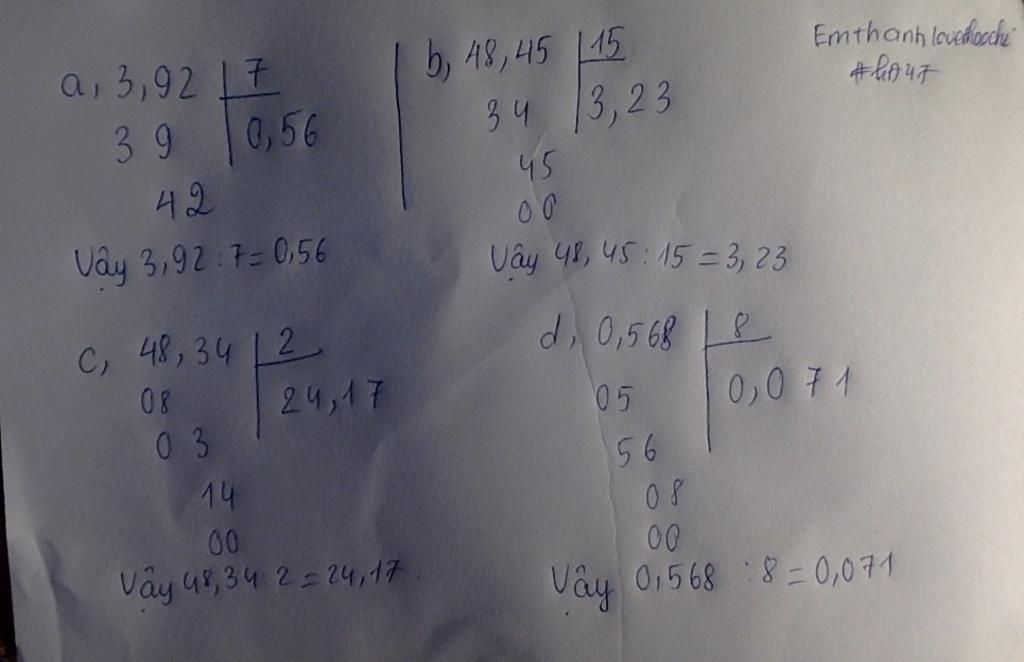 a, 3,92 7
3 9 0,56
42
Vậy 3,92 : 7 = 0,56
b, 48,45 15
34 3,23
45
00
Vậy 48,45 : 15 = 3,23
c, 48,34 2
08 24,17
03
14
00
Vậy 48,34 : 2 = 24,17.
d, 0,568 8
05 0,071
56
08
00
Vậy 0,568 : 8 = 0,071